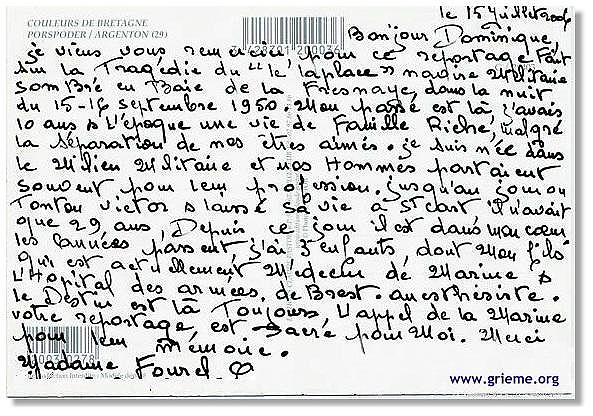 COULEURS DE BRETAGNE
PORSPODER / ARGENTON (29)
le 15 Juillet 2006
Bonjour Dominique,
je viens vous remercier pour ce reportage Fait
sur la Tragédie du "le laplace" navire Militaire
sombré en Baie de la Fresnaye, dans la nuit
du 15-16 septembre 1950. Mon passé est là, j'avais
10 ans à l'époque une vie de Famille Riche, malgré
la séparation de nos êtres aimés. je suis née dans
le Milieu Militaire et nos Hommes partaient
souvent pour leur profession. jusqu'au jour ou
Tonton Victor a laissé sa vie à St Cast il n'avait
que 29 ans, Depuis ce jour il est dans mon cœur
les années passent, j'ai 3 enfants, dont Mon fils
qui est actuellement Médecin de Marine à
L'Hopital des armées, de Brest. anesthésiste.
le Destin est là Toujours, L'appel de la Marine
votre reportage, est Sacré pour Moi. Merci
pour leur mémoire.
Madame Fourel
www.grieme.org